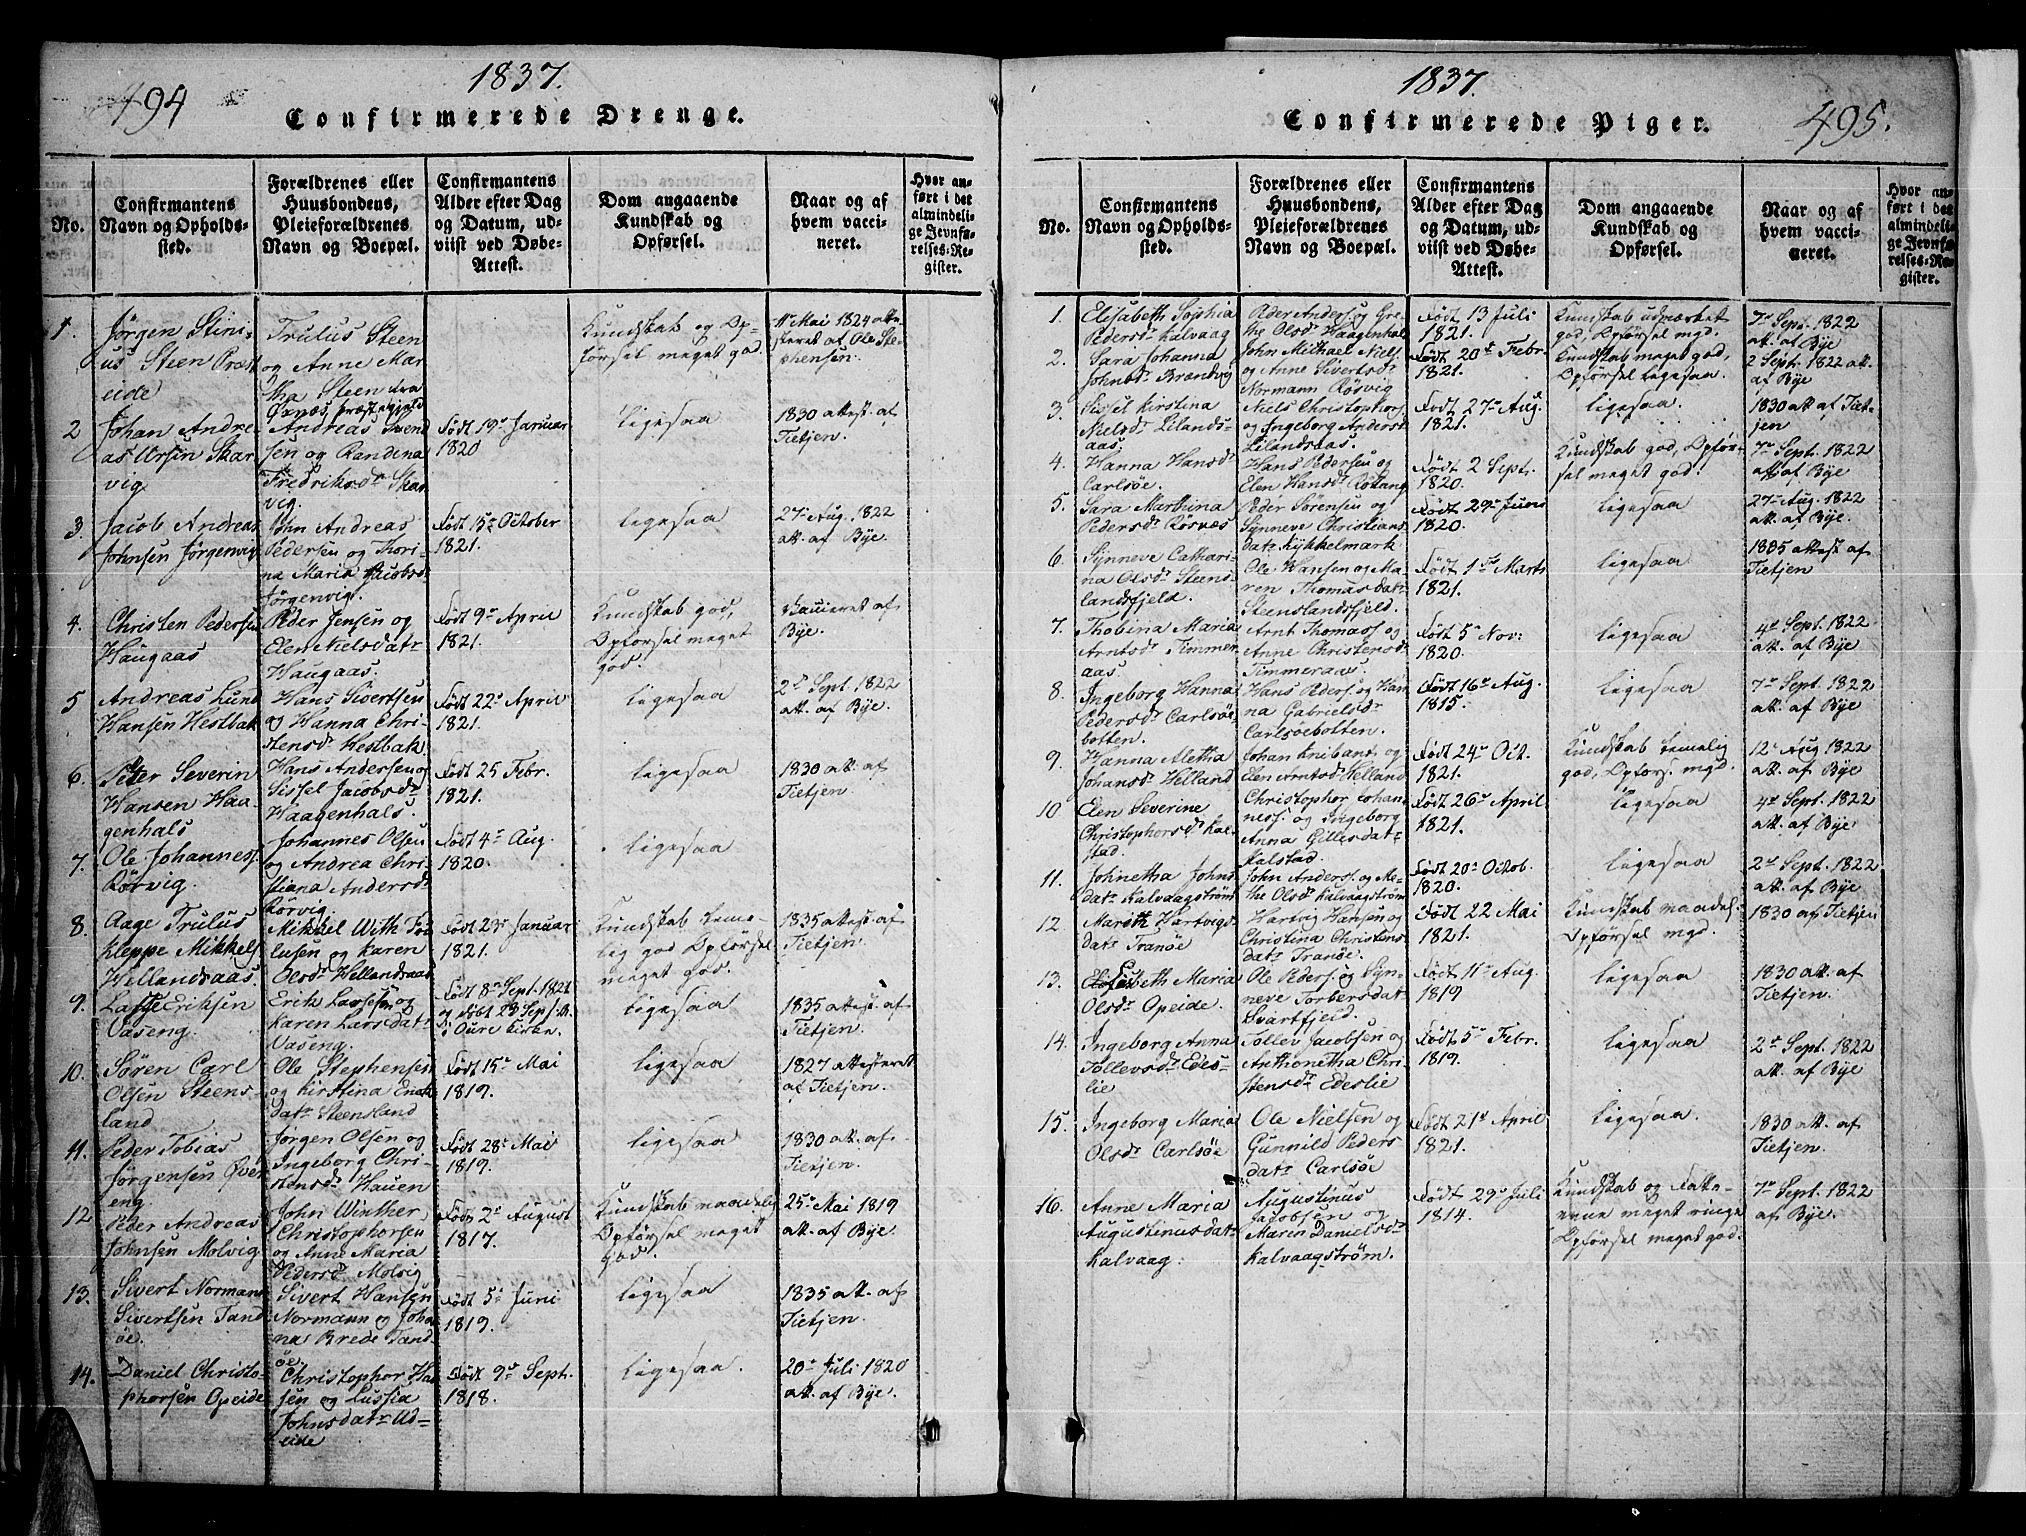 494
1837.
Confirmerede Drenge.
No.
Confirmantens
Navn og Opholds-
sted.
Forældrenes eller
Huusbondens,
Pleieforældrenes
Navn og Boepæl.
Confirmantens
Alder efter Dag
og Datum, ud-
viist ved Døbe-
Attest.
Dom angaaende
Kundskab og
Opførsel.
Naar og af
hvem vacci-
neret.
Hvor an-
ført i det
almindeli-
ge Jevnfø-
relses-Re-
gister.
1.
Jørgen Stini-
us Steen Præst-
eide
Trulus Steen
og Anne Mar-
tha Steen fra
Øxnæs præstegield
Kundskab og Op-
førsel meget god.
11te Mai 1824 atte-
steret af Ole Ste-
phensen.
2
Johan Andre-
as Ursin Skar-
vig
Andreas Svend-
sen og Randina
Fredriksdr Skar-
vig.
Født 19de Januar
1820
ligesaa
1830 attest. af
Tietjen.
3.
Jacob Andreas
Johnsen Jørgenvig
John Andreas
Pedersen og Thori-
na Maria Jacobsdr
Jørgenvig.
Født 15de October
1821.
ligesaa
27de Aug. 1822
att. af Bye.
4.
Christen Pedersen
Haugaas
Peder Jensen og
Elen Nielsdatr
Haugaas.
Født 9de April
1821.
Kundskab god,
Opførsel meget
god
Vaccineret af
Bye.
5
Andreas Lund
Hansen Hestbak
Hans Sivertsen
og Hanna Chri-
stensdr Hestbak.
Født 22de April
1821.
ligesaa
2den Sept. 1822
att. af Bye.
6.
Peter Severin
Hansen Haa-
genhals
Hans Andersen og
Sissel Jacobsdr
Haagenhals.
Født 25 Febr.
1821.
ligesaa
1830 att. af
Tietjen.
7.
Ole Johanness.
Rörvig.
Johannes Olsen
og Andrea Chri-
stiana Andersdr
Rörvig
Født 4de Aug.
1820.
ligesaa
8.
Aage Trulus
Kleppe Mikkels.
Hellandsaas.
Mikkel With
og Karen
Olsdr Hellandsaas
Født 23de Januar
1821.
Kundskab teme-
lig god Opførsel
meget god.
1835 attest. af
Tietjen.
9.
Lasse Eriksen
Vaseng.
Erik Larssen og
Karen Larsdatr
Vaseng.
Født 8de Sept. 1821
og døbt 23 Sept.
i Oure Kirke.
ligesaa
1835 attest. af
Tietjen.
10.
Søren Carl
Olsen Steens-
land
Ole Stephensen
og Kirstina
datr Steensland
Født 15de Mai
1819.
ligesaa
1827 attesteret
af Tietjen.
11.
Peder Tobias
Jørgensen Øver-
eng
Jørgen Olsen og
Ingeborg Chri-
stensdr Hauen
Født 28de Mai
1819.
ligesaa
1830 att. af
Tietjen.
12
Peder Andreas
Johnsen Molvig
John Winther
Christophorsen
og Anne Maria
Pedersdr Molvig
Født 2de August
1817.
Kundskab maadelig
Opførsel meget
god.
25de Mai 1819
att. af Bye.
13.
Sivert Normann
Sivertsen Tand-
øe.
Sivert Hansen
Normann og Joha-
na Brede Tand-
øe.
Født 5te Juni
1819.
ligesaa
1835 att. af
Tietjen.
14.
Daniel Christo-
phorsen Opeide
Christophor Han-
sen og Lussia
Johnsdatr Ud-
eide
Født 9de Sept.
1818.
ligesaa.
20de Juli 1820
att. af Bye.
1837.
495.
Confirmerede Piger.
No.
Confirmantens
Navn og Opholds-
sted.
Forældrenes eller
Huusbondens,
Pleieforældrenes
Navn og Boepæl.
Confirmantens
Alder efter Dag
og Datum, ud-
viist ved Døbe-
Attest.
Dom angaaende
Kundskab og
Opførsel.
Naar og af
hvem vacci-
neret.
Hvor an-
ført i det
almindeli-
ge Jevnfø-
relses-Re-
gister.
1.
Elisabeth Sophia
Pedersdr Kalvaag
Peder Anders. og Gre-
the Olsdr Haagenhal
Født 13 Juli
1821.
Kundskab udmærket
god, Opførsel mgd.
7de Sept. 1822
att. af Bye
2.
Sara Johanna
Johnsdr Brændvig
John Michael Niels.
og Anne Sivertsdr
Normann Rösvig
Født 20de Febr.
1821.
Kundskab meget god,
Opførsel ligesaa.
2 Septr. 1822 att.
af Bye
3.
Sissel Kirstina
Nielsdr Lilands-
aas.
Niels Christophers.
og Ingeborg Andersd.
Lilandsaas.
Født 27de Aug.
1821.
ligesaa.
1830 att af Tiet-
jen
4.
Hanna Hansdr
Carlsöe.
Hans Pedersen og
Elen Hansdr Rötang
Født 2 Sept.
1820.
Kundskab god, Opför-
sel meget god.
7de Sept. 1822
att. af Bye
5.
Sara Marthina
Pedersdr Rösnæs
Peder Sörensen og
Synneve Christians
datr Kykkelmark
Født 29de Juni
1820.
ligesaa
27de Aug. 1822
att. af Bye.
6.
Synneve Cathari-
na Olsdr Steens-
landsfjeld.
Ole Hansen og Ma-
ren Thomasdatr
Steenslandsfjeld.
Født 1ste Marts
1821.
ligesaa
1835 attest af
Tietjen
7.
Thobina Maria
Arntsdr Timmer-
aas.
Arnt Thomass. og
Anne Christensdr
Timmeraas
Født 5te Nov:
1820.
ligesaa
4de Sept. 1822
att. af Bye
8.
Ingeborg Hanna
Pedersdr Carlsöe-
botten.
Hans Peders. og Han-
na Gabrielsdr
Carlsöebotten.
Født 16de Aug.
1815.
ligesaa
7de Sept. 1822
att. af Bye
9.
Hanna Aletha
Johansdr Helland
Johan Knibant og
Elen Arntsdr Helland
Født 24de Oct.
1821.
Kundskab temelig
god, Opførs. mgd.
12te Aug 1822
att. af Bye
10
Elen Severine
Christophorsdr Kal-
stad.
Christophor Johan-
ness. og Ingeborg
Anna Gillesdatr
Kalstad.
Født 26de April
1821.
ligesaa
4de Sept. 1822
att. af Bye
11.
Johnetha Johns
datr Kalvaagström
John Anderss. og Me-
the Olsdr Kalvaagström
Født 20de Octob.
1820.
ligesaa
2den Sept. 1822
att. af Bye
12.
Marith Hartvigs
datr Tranöe
Hartvig Hansen og
Christina Christens
datr Tranöe.
Født 22 Mai
1821.
Kundskab maadel.
Opførsel mgd.
1830 af Tietjen
13.
Elisabeth Maria
Olsdr Opeide.
Ole Peders. og Syn-
neve Torbersdatr
Svartfjeld.
Født 11te Aug.
1819
ligesaa
1830 att. af
Tietjen.
14.
Ingeborg Anna
Tollevsdr Edes-
lie
Tollev Jacobsen og
Anthonetha Chri-
stensdr Edeslie
Født 5te Febr.
1819.
ligesaa
2den Sept. 1822
att. af Bye
15.
Ingeborg Maria
Olsdr Carlsöe
Ole Nielsen og
Gunnild Peders
datr Carlsöe
Født 21de April
1821.
ligesaa.
1830 att. af
Tietjen.
16.
Anne Maria
Augustinusdatr
Kalvaag.
Augustinus
Jacobsen og
Maren Danielsdr
Kalvaagström.
Født 29de Juli
1814.
Kundskab og Fatte-
evne meget ringe
Opførsel meget god.
7de Sept. 1822
af Bye.